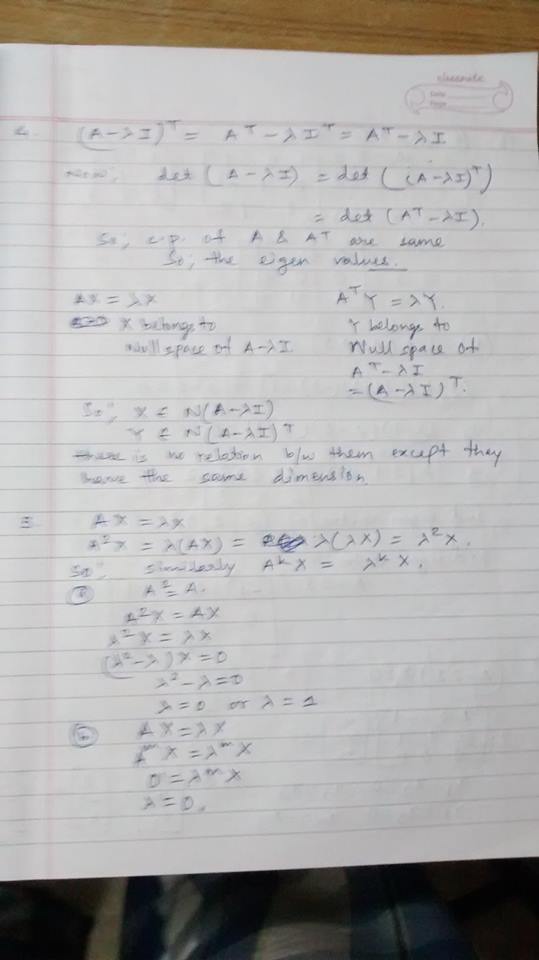 classmate
Date
Page
2. (A-λI)ᵀ = Aᵀ-λIᵀ = Aᵀ-λI
Now, det (A-λI) = det ((A-λI)ᵀ)
= det (Aᵀ-λI).
So; c.p. of A & Aᵀ are same
So; the eigen values.
AX = λX
X belongs to
Null space of A-λI
AᵀY = λY.
Y belongs to
Null space of
Aᵀ-λI
=(A-λI)ᵀ.
So; X ∈ N(A-λI)
Y ∈ N(A-λI)ᵀ
there is no relation b/w them except they
have the same dimension.
3. AX = λX
A²X = λ(AX) = λ(λX) = λ²X.
So; similarly AᵏX = λᵏX.
ⓐ A² = A.
A²X = AX
λ²X = λX
(λ²-λ)X = 0
λ²-λ = 0
λ = 0 or λ = 1
ⓑ AX = λX
AᵐX = λᵐX
0 = λᵐX
λ = 0.